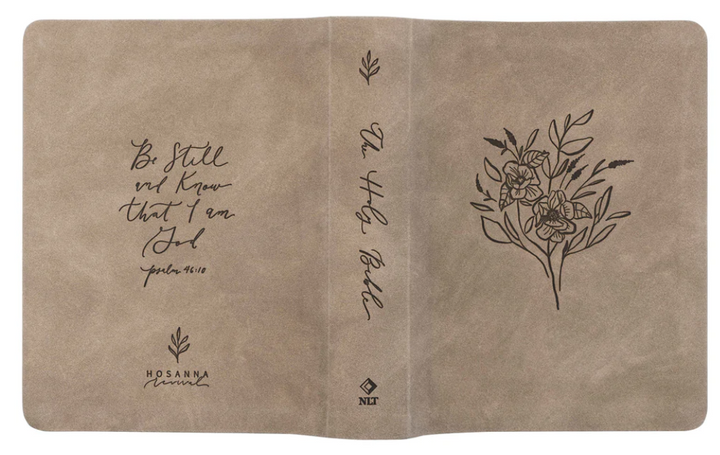 Be Still
and Know
that I am
God
psalm 46:10
HOSANNA
revival
The Holy Bible
NLT